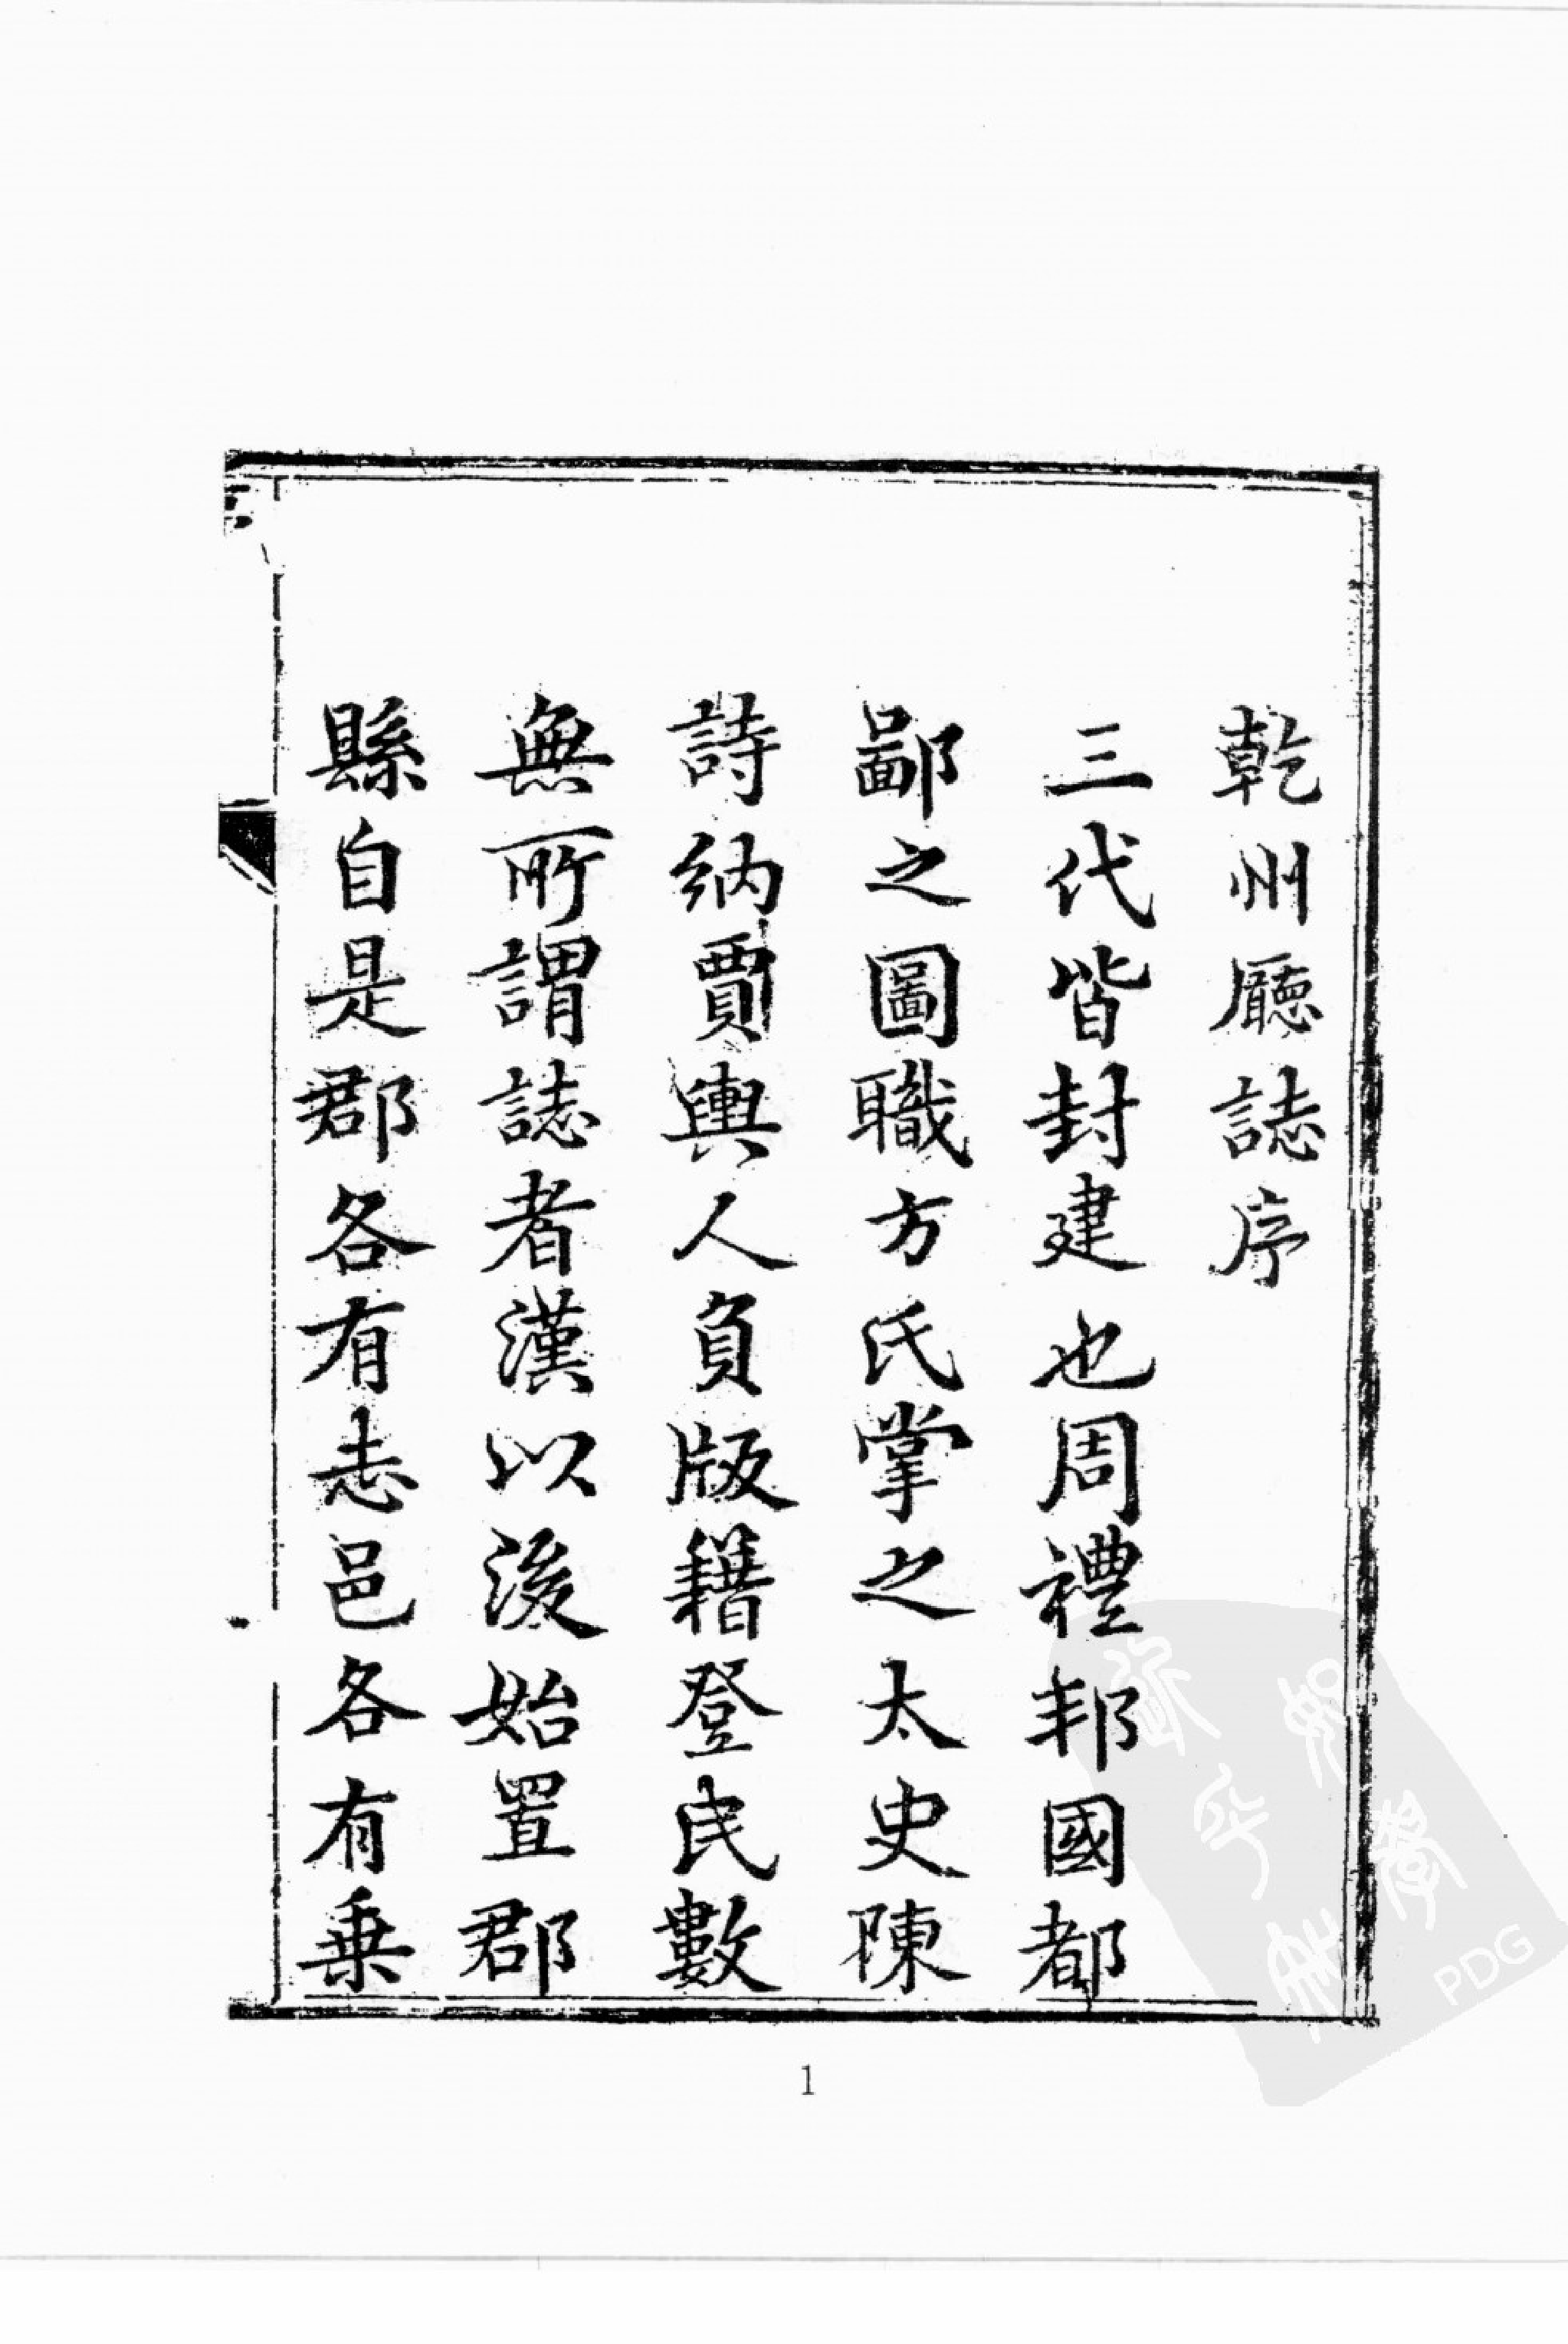 乾州廳誌序
三代皆封建也周禮邦國都
鄙之圖職方氏掌之太史陳
詩納賈輿人負版籍登民數
無所謂誌者漢以後始置郡
縣自是郡各有志邑各有乗
1
PDG